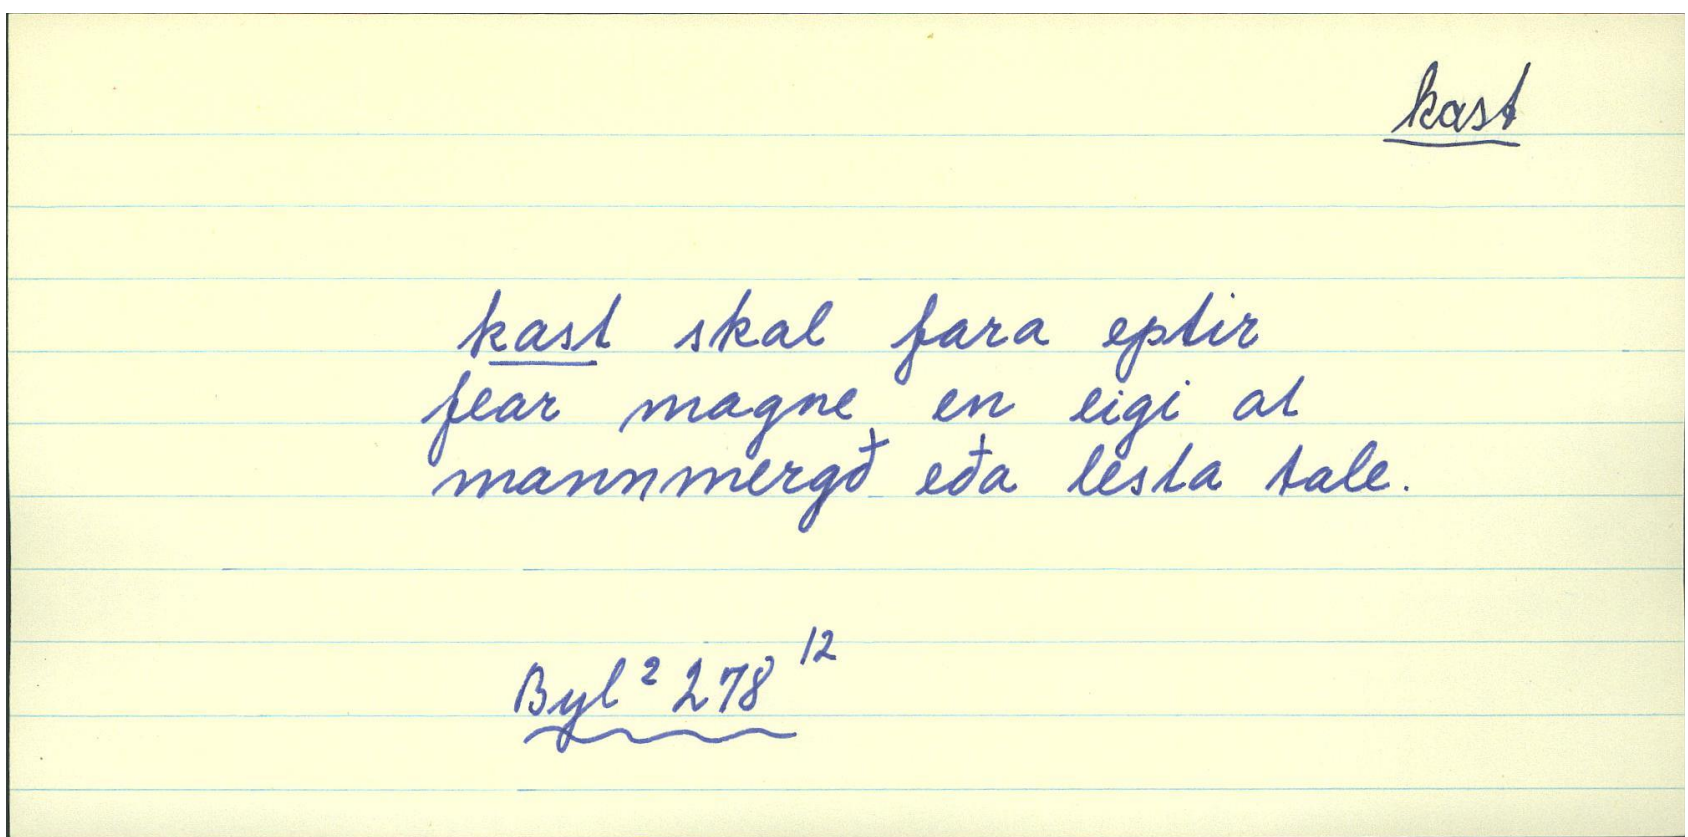 kast
kast skal fara eptir
fear magne en eigi at
mannmergð eða lesta tale.
Byl² 278¹²